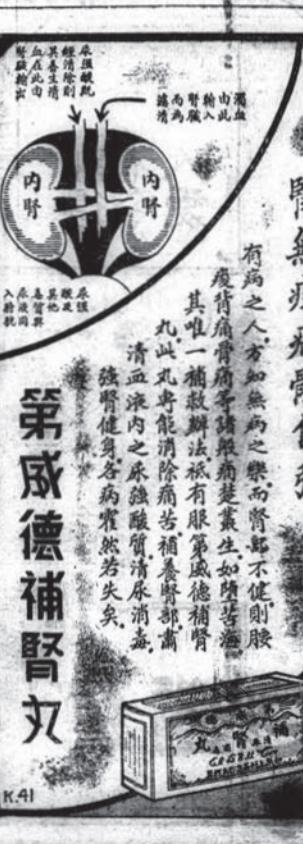 濁血
由此
輸入
腎臟
而為
濾清
尿強酸既
經清除則
其養生清
血在此由
腎臟輸出
內腎
內腎
尿強
酸及
其他
毒質與
尿液同
入膀胱
有病之人。方知無病之樂。而腎部不健。則腰
痠背痛骨痛等諸般痛楚叢生。如墮苦海。
其唯一補救辦法。祇有服第威德補腎
丸。此丸專能消除痛苦。補養腎部。肅
清血液內之尿強酸質。清尿消毒。
強腎健身。各病霍然若失矣。
第威德補腎丸
補腎丸
K.41